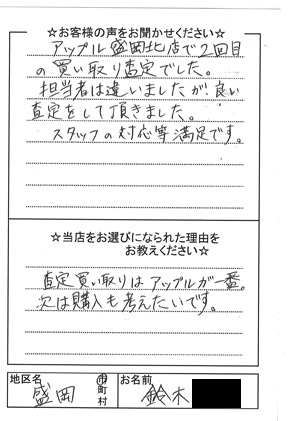 ☆お客様の声をお聞かせください☆
アップル盛岡北店で2回目
の買い取り査定でした。
担当者は違いましたが、良い
査定をして頂きました。
スタッフの対応等満足です。
☆当店をお選びになられた理由を
お教えください☆
査定買い取りはアップルが一番。
次は購入も考えたいです。
地区名 盛岡 市町村 お名前 鈴木